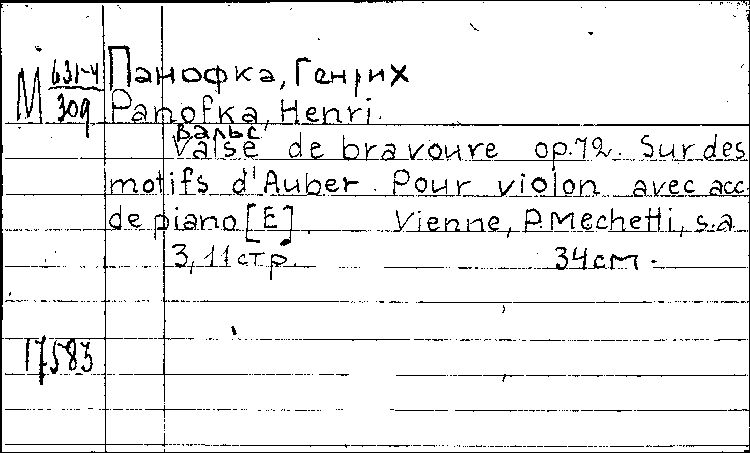 М 631-4/309
Панофка, Генрих
Panofka, Henri.
вальс
Valse de bravoure op.72. Sur des
motifs d'Auber. Pour violon avec acc.
de piano [E]. Vienne, P. Mechetti, s.a
3, 11 стр. 34 см.
17583